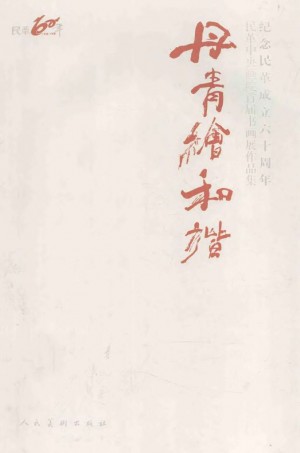 民革60年
纪念民革成立六十周年
民革中央首届书画展作品集
丹青繪和諧
人民美术出版社